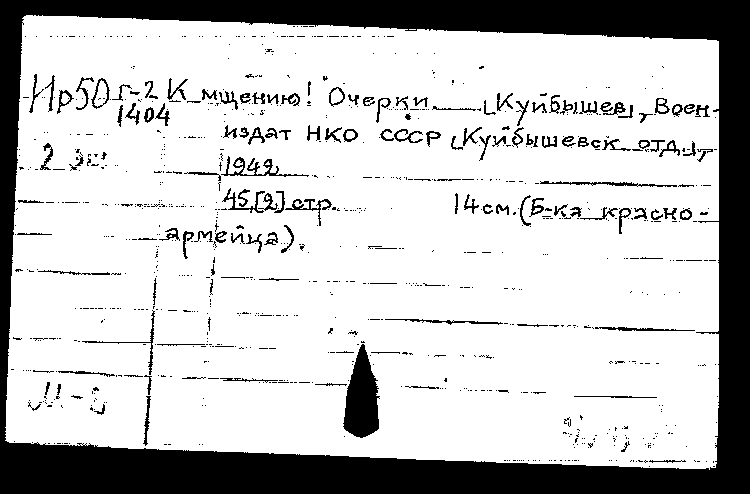 Нр50 г-2 К мщению! Очерки. — [Куйбышев], Воен-
1404
издат НКО СССР [Куйбышевск. отд.],
2 эк
1942
45,[2] стр. 14 см. (Б-ка красно-
армейца).
М-2